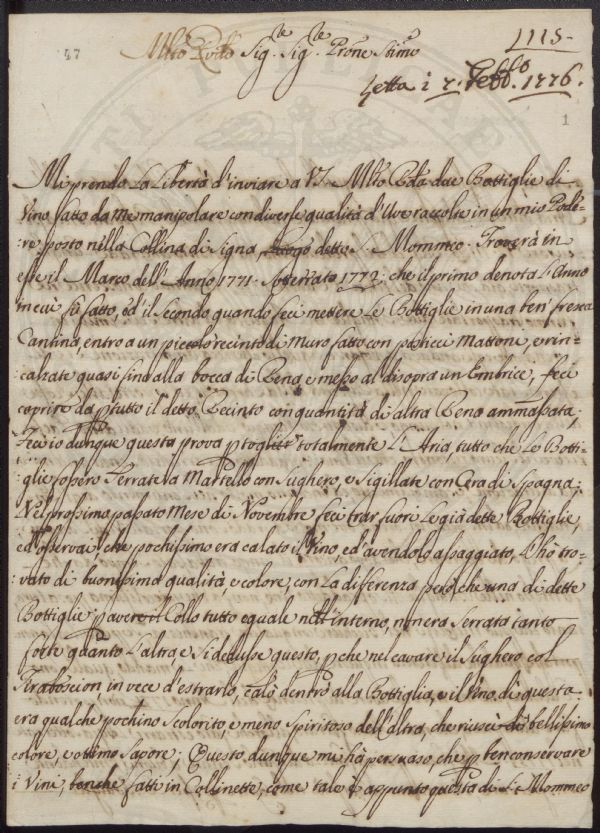 47
1115-
Mlto Revdo Sig.re Sig.re Prone Stimo
Letta i 7. Febbo. 1776.
1
Mi prendo La Libertà d'inviare a V.S. Mlto Revda due Bottiglie di
Vino fatto da me manipolare con diverse qualità d'Uve raccolte in un mio Pode=
:re posto nella Collina di Signa, luogo detto S. Mommeo. Troverà in
esse il Marco dell'Anno 1771. Sotterrato 1772. che il primo denota L'Anno
in cui fù fatto, ed il Secondo quando feci mettere Le Bottiglie in una ben fresca
Cantina, entro a un piccolo recinto di Muro fatto con posticci Mattone, e rin=
:calzate quasi fino alla bocca di Rena e messo al disopra un Embrice, feci
coprire da ptutto il detto Recinto con quantità di altra Rena ammassata;
Feci io dunque questa prova p togliere totalmente L'Aria, tutto che Le Botti=
:glie fossero Serrate a Martello con Sughero, e Sigillate con Cera di Spagna;
Nel prossimo passato Mese di Novembre feci trar fuori Le già dette Bottiglie,
ed osservai che pochissimo era calato il Vino, ed avendolo assaggiato, L'hò tro=
:vato di buonissima qualità, e colore, con La diferenza però che una di dette
Bottiglie p avere il Collo tutto eguale nell'interno, non era Serrata tanto
forte quanto L'altra e Si dedusse questo, pche nel cavare il Sughero col
Tiraboscion, in vece d'estrarlo, calò dentro alla Bottiglia, e il Vino di questa
era qualche pochino Scolorito, e meno Spiritoso dell'altra, che riuscì di bellissimo
colore, e ottimo Sapore; Questo dunque mi hà persuaso, che p ben conservare
i Vini, benche fatti in Collinette, come tale è appunto questa di S. Mommeo